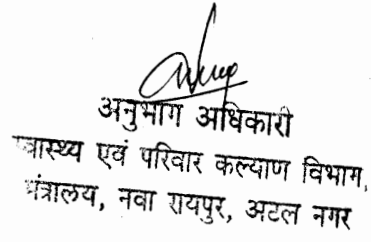 अनुभाग अधिकारी
स्वास्थ्य एवं परिवार कल्याण विभाग,
मंत्रालय, नवा रायपुर, अटल नगर